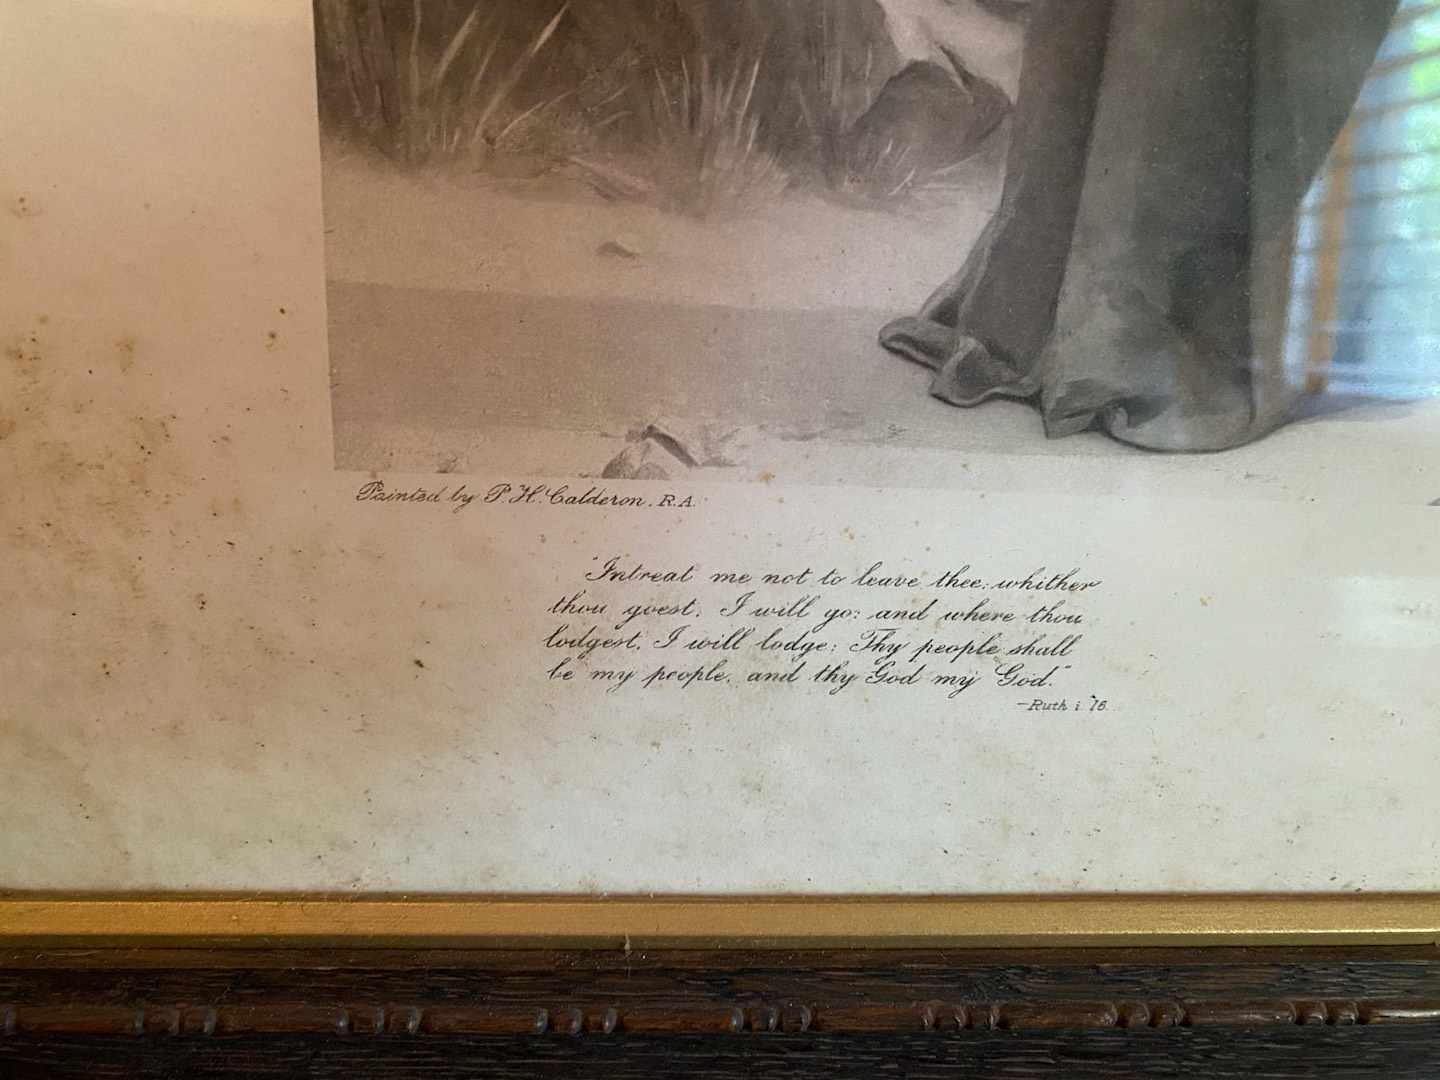 Painted by P. H. Calderon, R.A.
"Intreat me not to leave thee; whither
thou goest, I will go: and where thou
lodgest, I will lodge: Thy people shall
be my people, and thy God my God."
—Ruth i. 16.